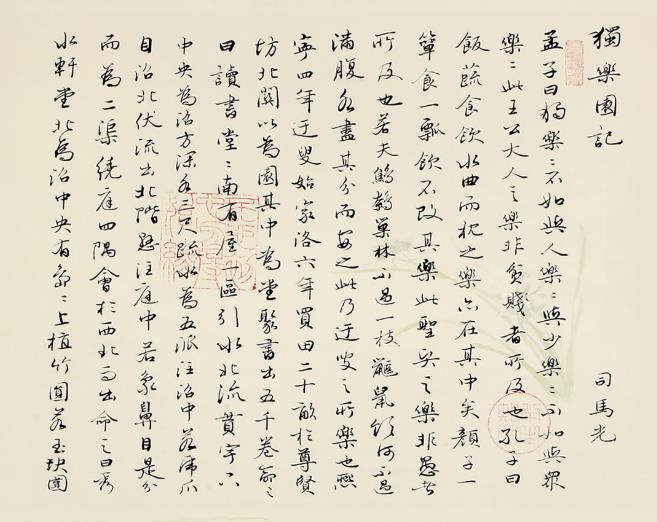 獨樂園記
司馬光
孟子曰獨樂〻不如與人樂〻與少樂〻不如與眾
樂〻此王公大人之樂非貧賤者所及也孔子曰
飯蔬食飲水曲而枕之樂亦在其中矣顏子一
簞食一瓢飲不改其樂此聖賢之樂非愚者
所及也若夫鷦鷯巢林不過一枝鼴鼠飲河不過
滿腹各盡其分而安之此乃迂叟之所樂也熙
寧四年迂叟始家洛六年買田二十畝於尊賢
坊北闢以為園其中為堂聚書出五千卷命之
曰讀書堂〻南有屋一區引水北流貫宇下
中央為沼方深各三尺疏水為五派注沼中若虎爪
自沼北伏流出北階懸注庭中若象鼻自是分
而為二渠繞庭四隅會於西北而出命之曰弄
水軒堂北為沼中央有島〻上植竹圓若玉玦圍